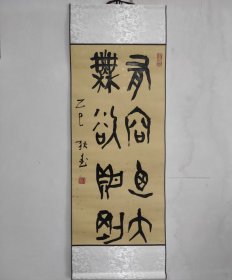 有容迺大
無欲則剛
乙巳 秋